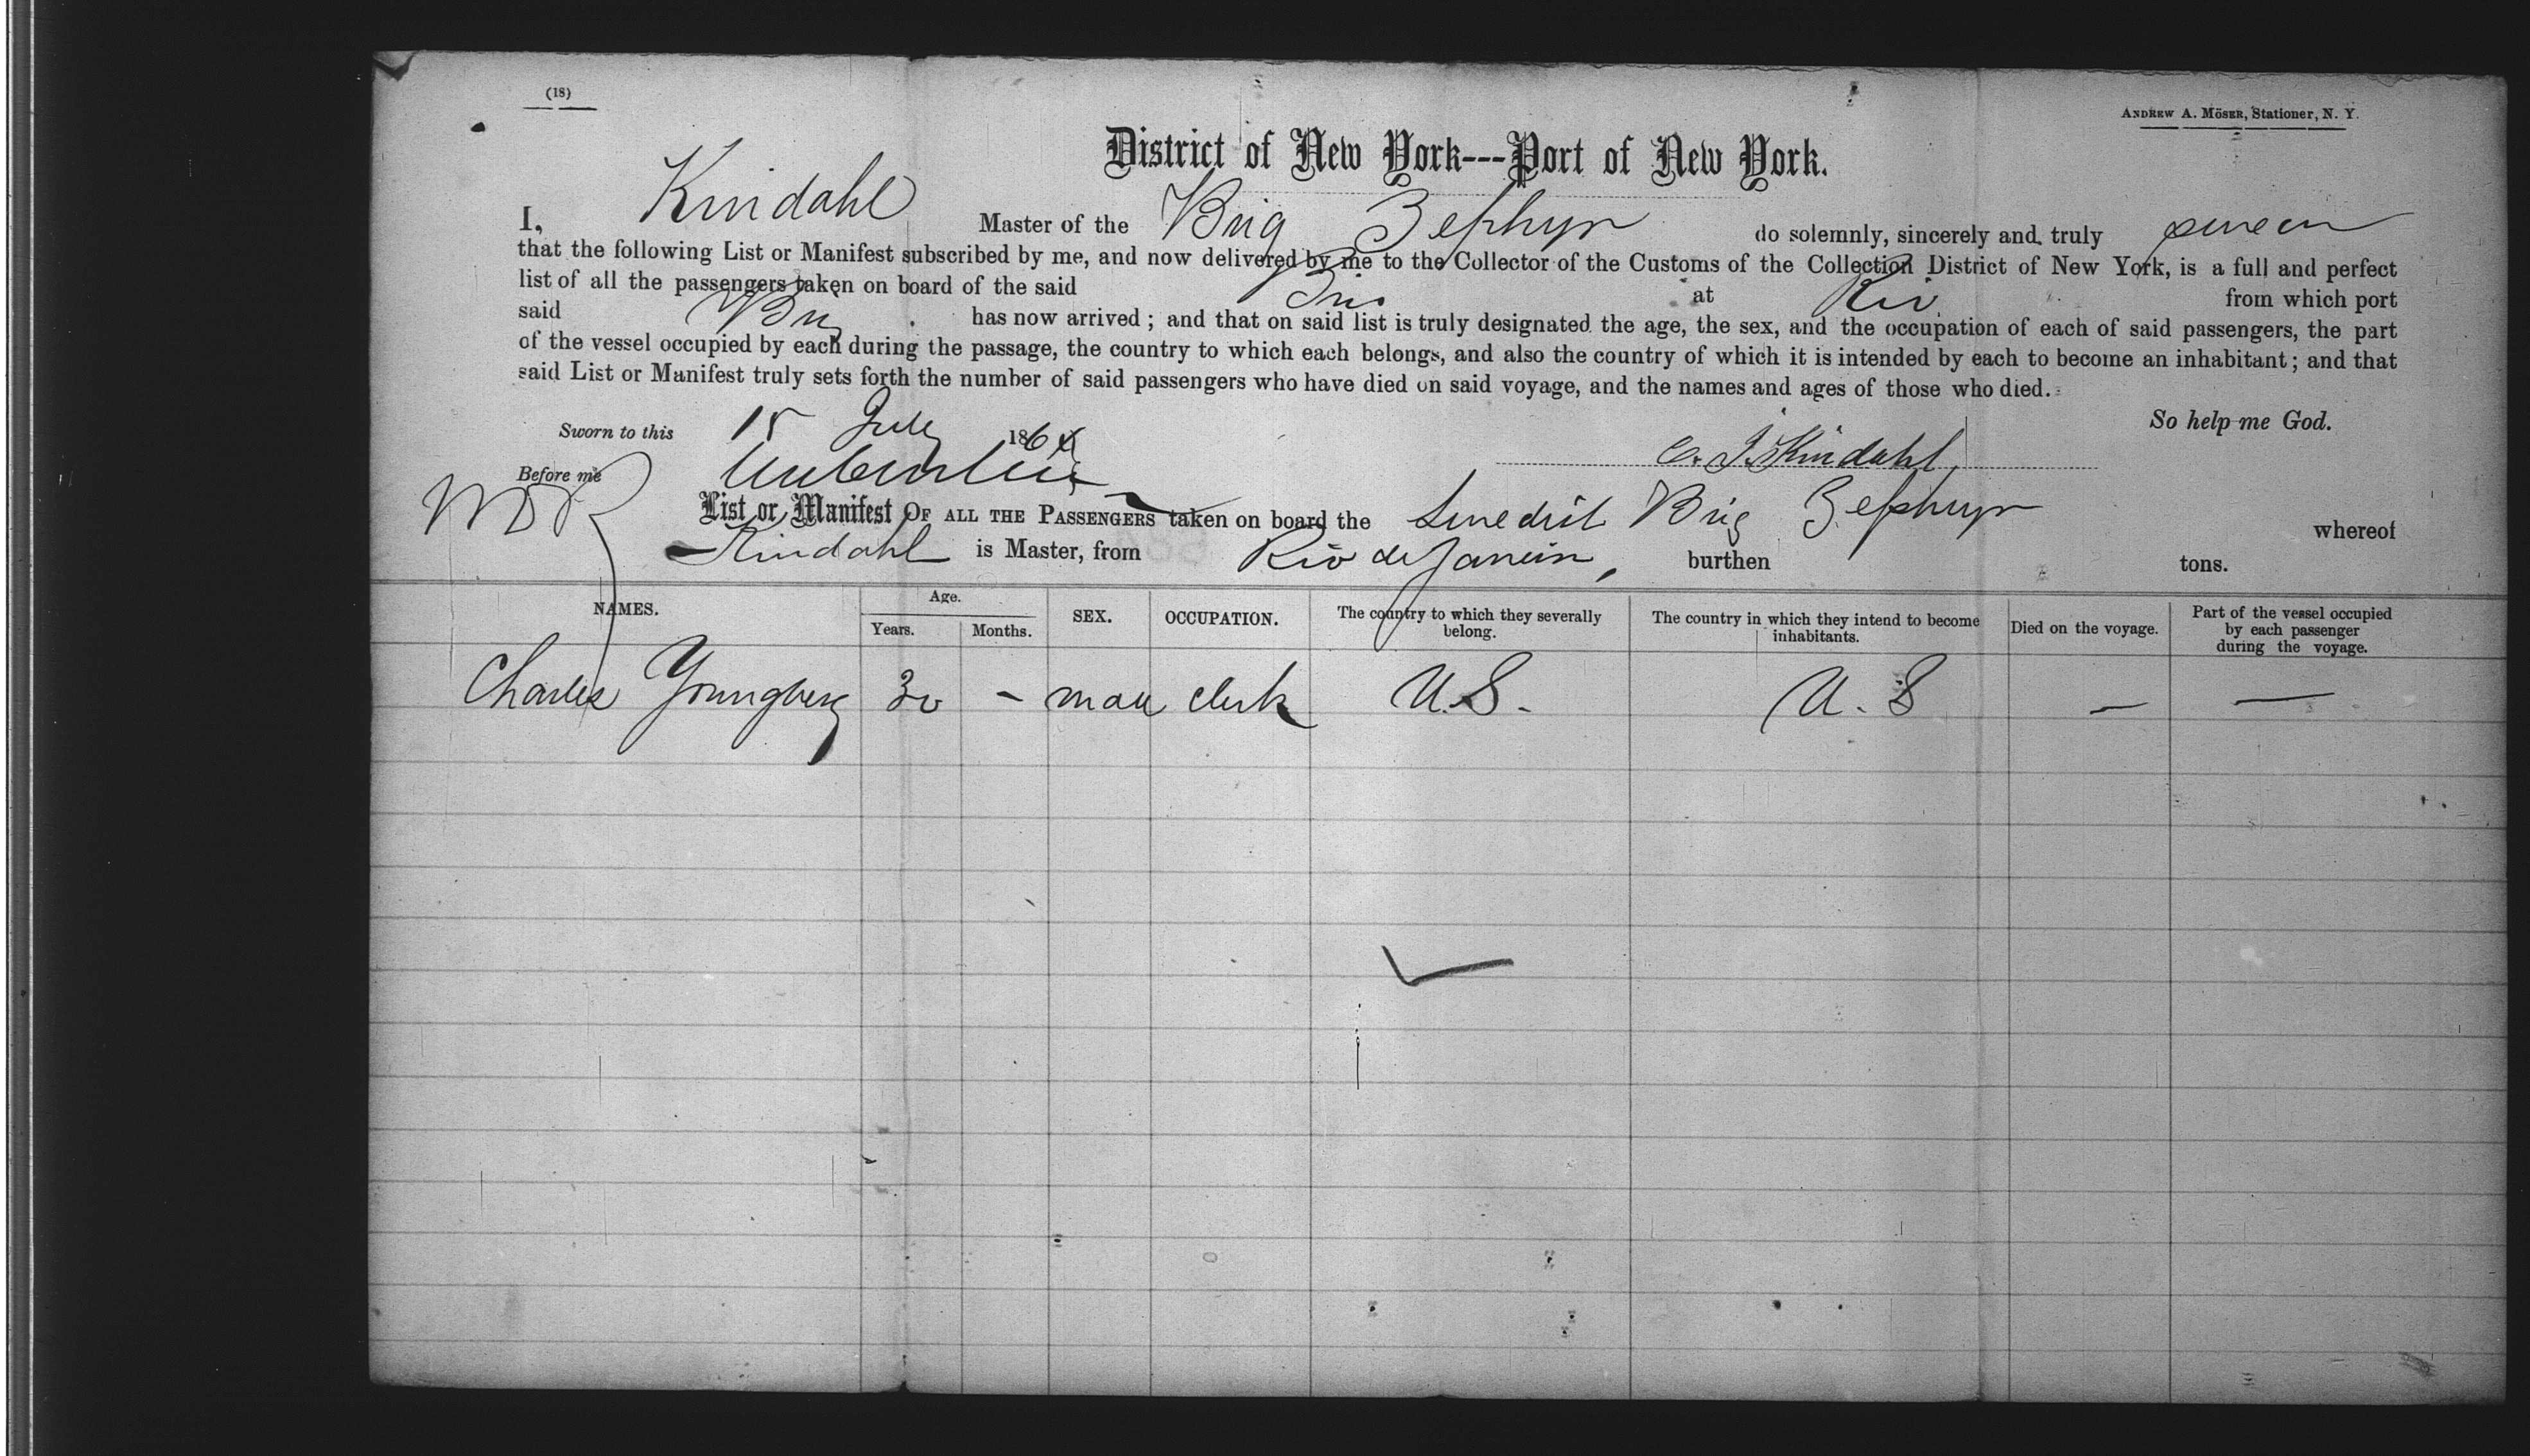 (18)
ANDREW A. MÖSER, Stationer, N. Y.
District of New York---Port of New York.
I, Kindahl Master of the Brig Zephyr do solemnly, sincerely and truly swear
that the following List or Manifest subscribed by me, and now delivered by me to the Collector of the Customs of the Collection District of New York, is a full and perfect
list of all the passengers taken on board of the said Brig at Rio from which port
said Brig has now arrived; and that on said list is truly designated the age, the sex, and the occupation of each of said passengers, the part
of the vessel occupied by each during the passage, the country to which each belongs, and also the country of which it is intended by each to become an inhabitant; and that
said List or Manifest truly sets forth the number of said passengers who have died on said voyage, and the names and ages of those who died.
So help me God.
Sworn to this 15 July 186
C. J. Kindahl
Before me
List or Manifest OF ALL THE PASSENGERS taken on board the Swedish Brig Zephyr whereof
Kindahl is Master, from Rio de Janeiro, burthen tons.
NAMES. Age. Years. Months. SEX. OCCUPATION. The country to which they severally belong. The country in which they intend to become inhabitants. Died on the voyage. Part of the vessel occupied by each passenger during the voyage.
Charles Youngberg 30 - male clerk U.S. U.S — —